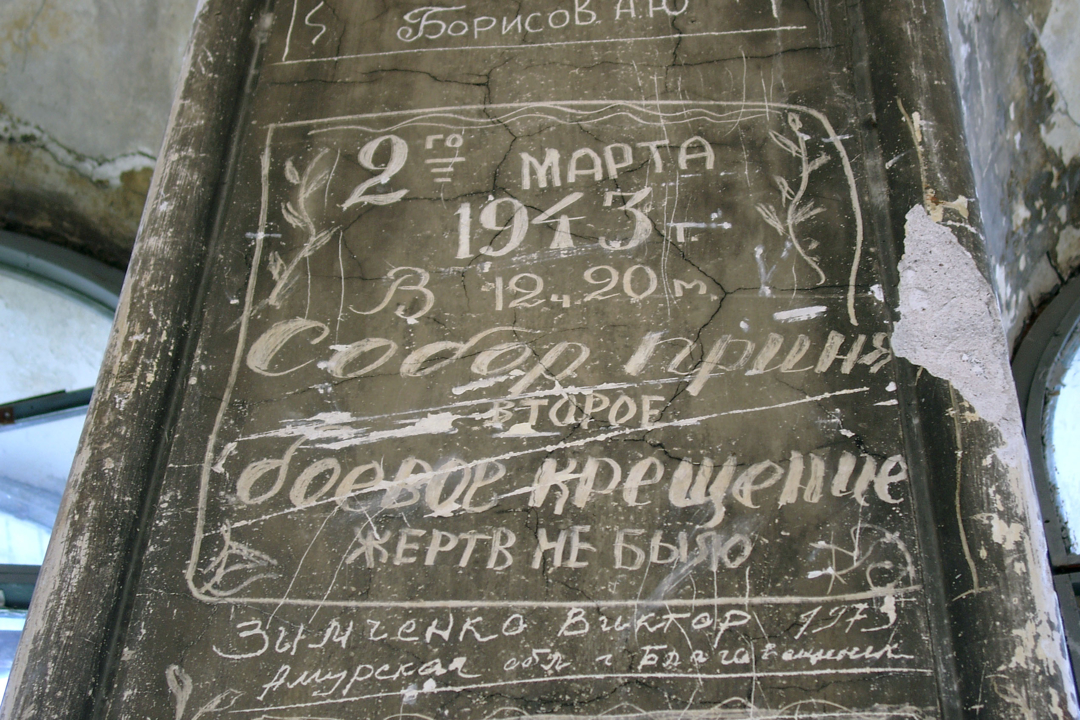 Борисов. А.Ю
2го МАРТА
1943 г.
В 12ч. 20 м.
Собор приня
ВТОРОЕ
боевое крещение
ЖЕРТВ НЕ БЫЛО
Зымченко Виктор 1973
Амурская обл. г Благовещенск